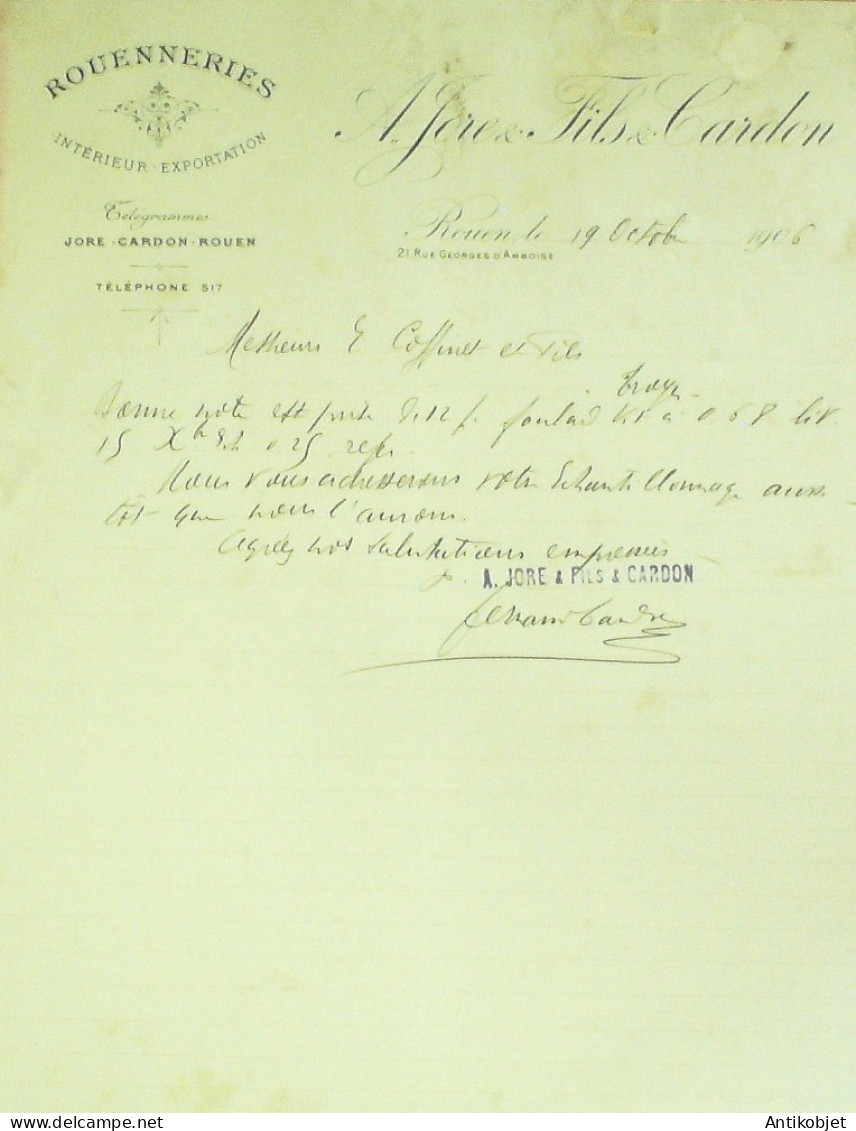 ROUENNERIES
INTÉRIEUR - EXPORTATION
A. Jore & Fils & Cardon
Télégrammes
JORE - CARDON - ROUEN
TÉLÉPHONE 517
Rouen, le 19 Octobre 1906
21, RUE GEORGES D'AMBOISE
Messieurs E Coffinet et Fils
Troyes
Bonne note est prise de 12 p. foulard à 0 68 liv
15 Xbre
Nous vous adresserons votre Echantillonnage aussi
tôt que nous l'aurons.
Agréez nos salutations empressées
p. A. JORE & FILS & CARDON
Antikobjet